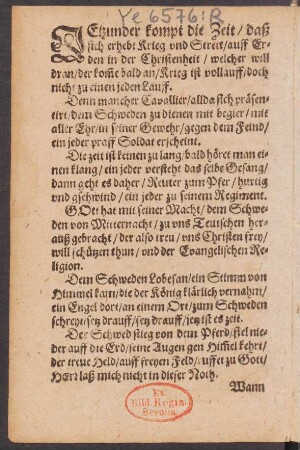 Ye 6576:R
JEtzunder kompt die Zeit / daß
sich erhebt Krieg vnd Streit / auff Er-
den in der Christenheit / welcher will
dran / der kom̃e bald an / Krieg ist vollauff / doch
nicht zu einen jeden Lauff.
Denn mancher Cavallier / allda sich präsen-
tirt / dem Schweden zu dienen mit begier / mit
aller Ehr / in seiner Gewehr / gegen dem Feind /
ein jeder praff Soldat erscheint.
Die zeit ist keinen zu lang / bald höret man ei-
nen klang / ein jeder versteht das selbe Gesang /
dann geht es daher / Reuter zum Pfer / hurtig
vnd gschwind / ein jeder zu seinem Regiment.
GOtt hat mit seiner Macht / dem Schwe-
den von Mitternacht / zu vns Teutschen her-
auß gebracht / der also treu / vns Christen frey /
will schützen thun / vnd der Evangelischen Re-
ligion.
Dem Schweden Lobesan / ein Stimm von
Himmel kam / die der König klärlich vernahm /
ein Engel dort / an einem Ort / zum Schweden
schreyt / setz drauff / setz drauff / jetz ist es zeit.
Der Schwed stieg von dem Pferd / fiel nie-
der auff die Erd / seine Augen gen Him̃el kehrt /
der treue Held / auff freyen Feld / rufft zu Gott /
HErr laß mich nicht in dieser Noth.
Wann
Ex
Bibl. Regia
Berolin.